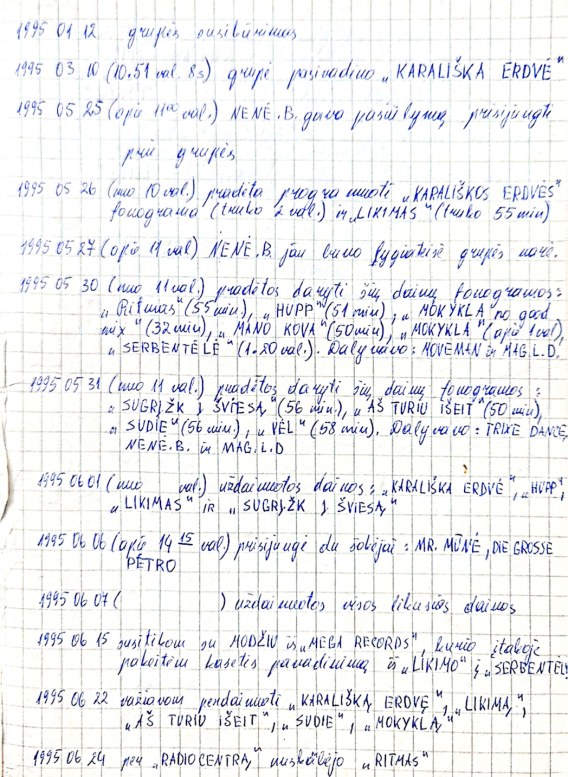 1995 01 12 grupės susibūrimas
1995 03 10 (10.51 val. 8s) grupė pasivadino „KARALIŠKA ERDVĖ"
1995 05 25 (apie 11⁰⁰ val.) NENĖ.B. gavo pasiūlymą prisijungti
prie grupės
1995 05 26 (nuo 10 val.) pradėta programuoti „KARALIŠKOS ERDVĖS"
fonograma (truko 2 val.) ir „LIKIMAS" (truko 55 min)
1995 05 27 (apie 11 val) NENĖ.B. jau buvo lygiateisė grupės narė.
1995 05 30 (nuo 11 val.) pradėtos daryti šių dainų fonogramos:
„Ritmas" (55 min), „HUPP" (51 min), „MOKYKLA no god
mix" (32 min), „MANO KOVA" (50 min), „MOKYKLA" (apie 1 val),
„SERBENTĖLĖ" (1.20 val.). Dalyvavo: MOVEMAN ir MAG.L.D.
1995 05 31 (nuo 11 val.) pradėtos daryti šių dainų fonogramos:
„SUGRĮŽK Į ŠVIESĄ" (56 min.), „AŠ TURIU IŠEIT" (50 min),
„SUDIE" (56 min.), „VĖL" (58 min). Dalyvavo: TRIXE DANCE,
NENĖ.B. ir MAG.L.D
1995 06 01 (nuo val.) uždainuotos dainos: „KARALIŠKA ERDVĖ", „HUPP",
„LIKIMAS" IR „SUGRĮŽK Į ŠVIESĄ"
1995 06 06 (apie 14 15 val) prisijungė du šokėjai: MR. MŪNĖ, DIE GROSSE
PĖTRO
1995 06 07 ( ) uždainuotos visos likusios dainos
1995 06 15 susitikom su MODŽIU iš „MEGA RECORDS", kurio įtakoje
pakeitėm kasetės pavadinimą iš „LIKIMO" į „SERBENTĖLĘ
1995 06 22 važiavom perdainuoti „KARALIŠKĄ ERDVĘ", „LIKIMĄ",
„AŠ TURIU IŠEIT", „SUDIE", „MOKYKLĄ"
1995 06 24 per „RADIOCENTRĄ" nuskambėjo „RITMAS"